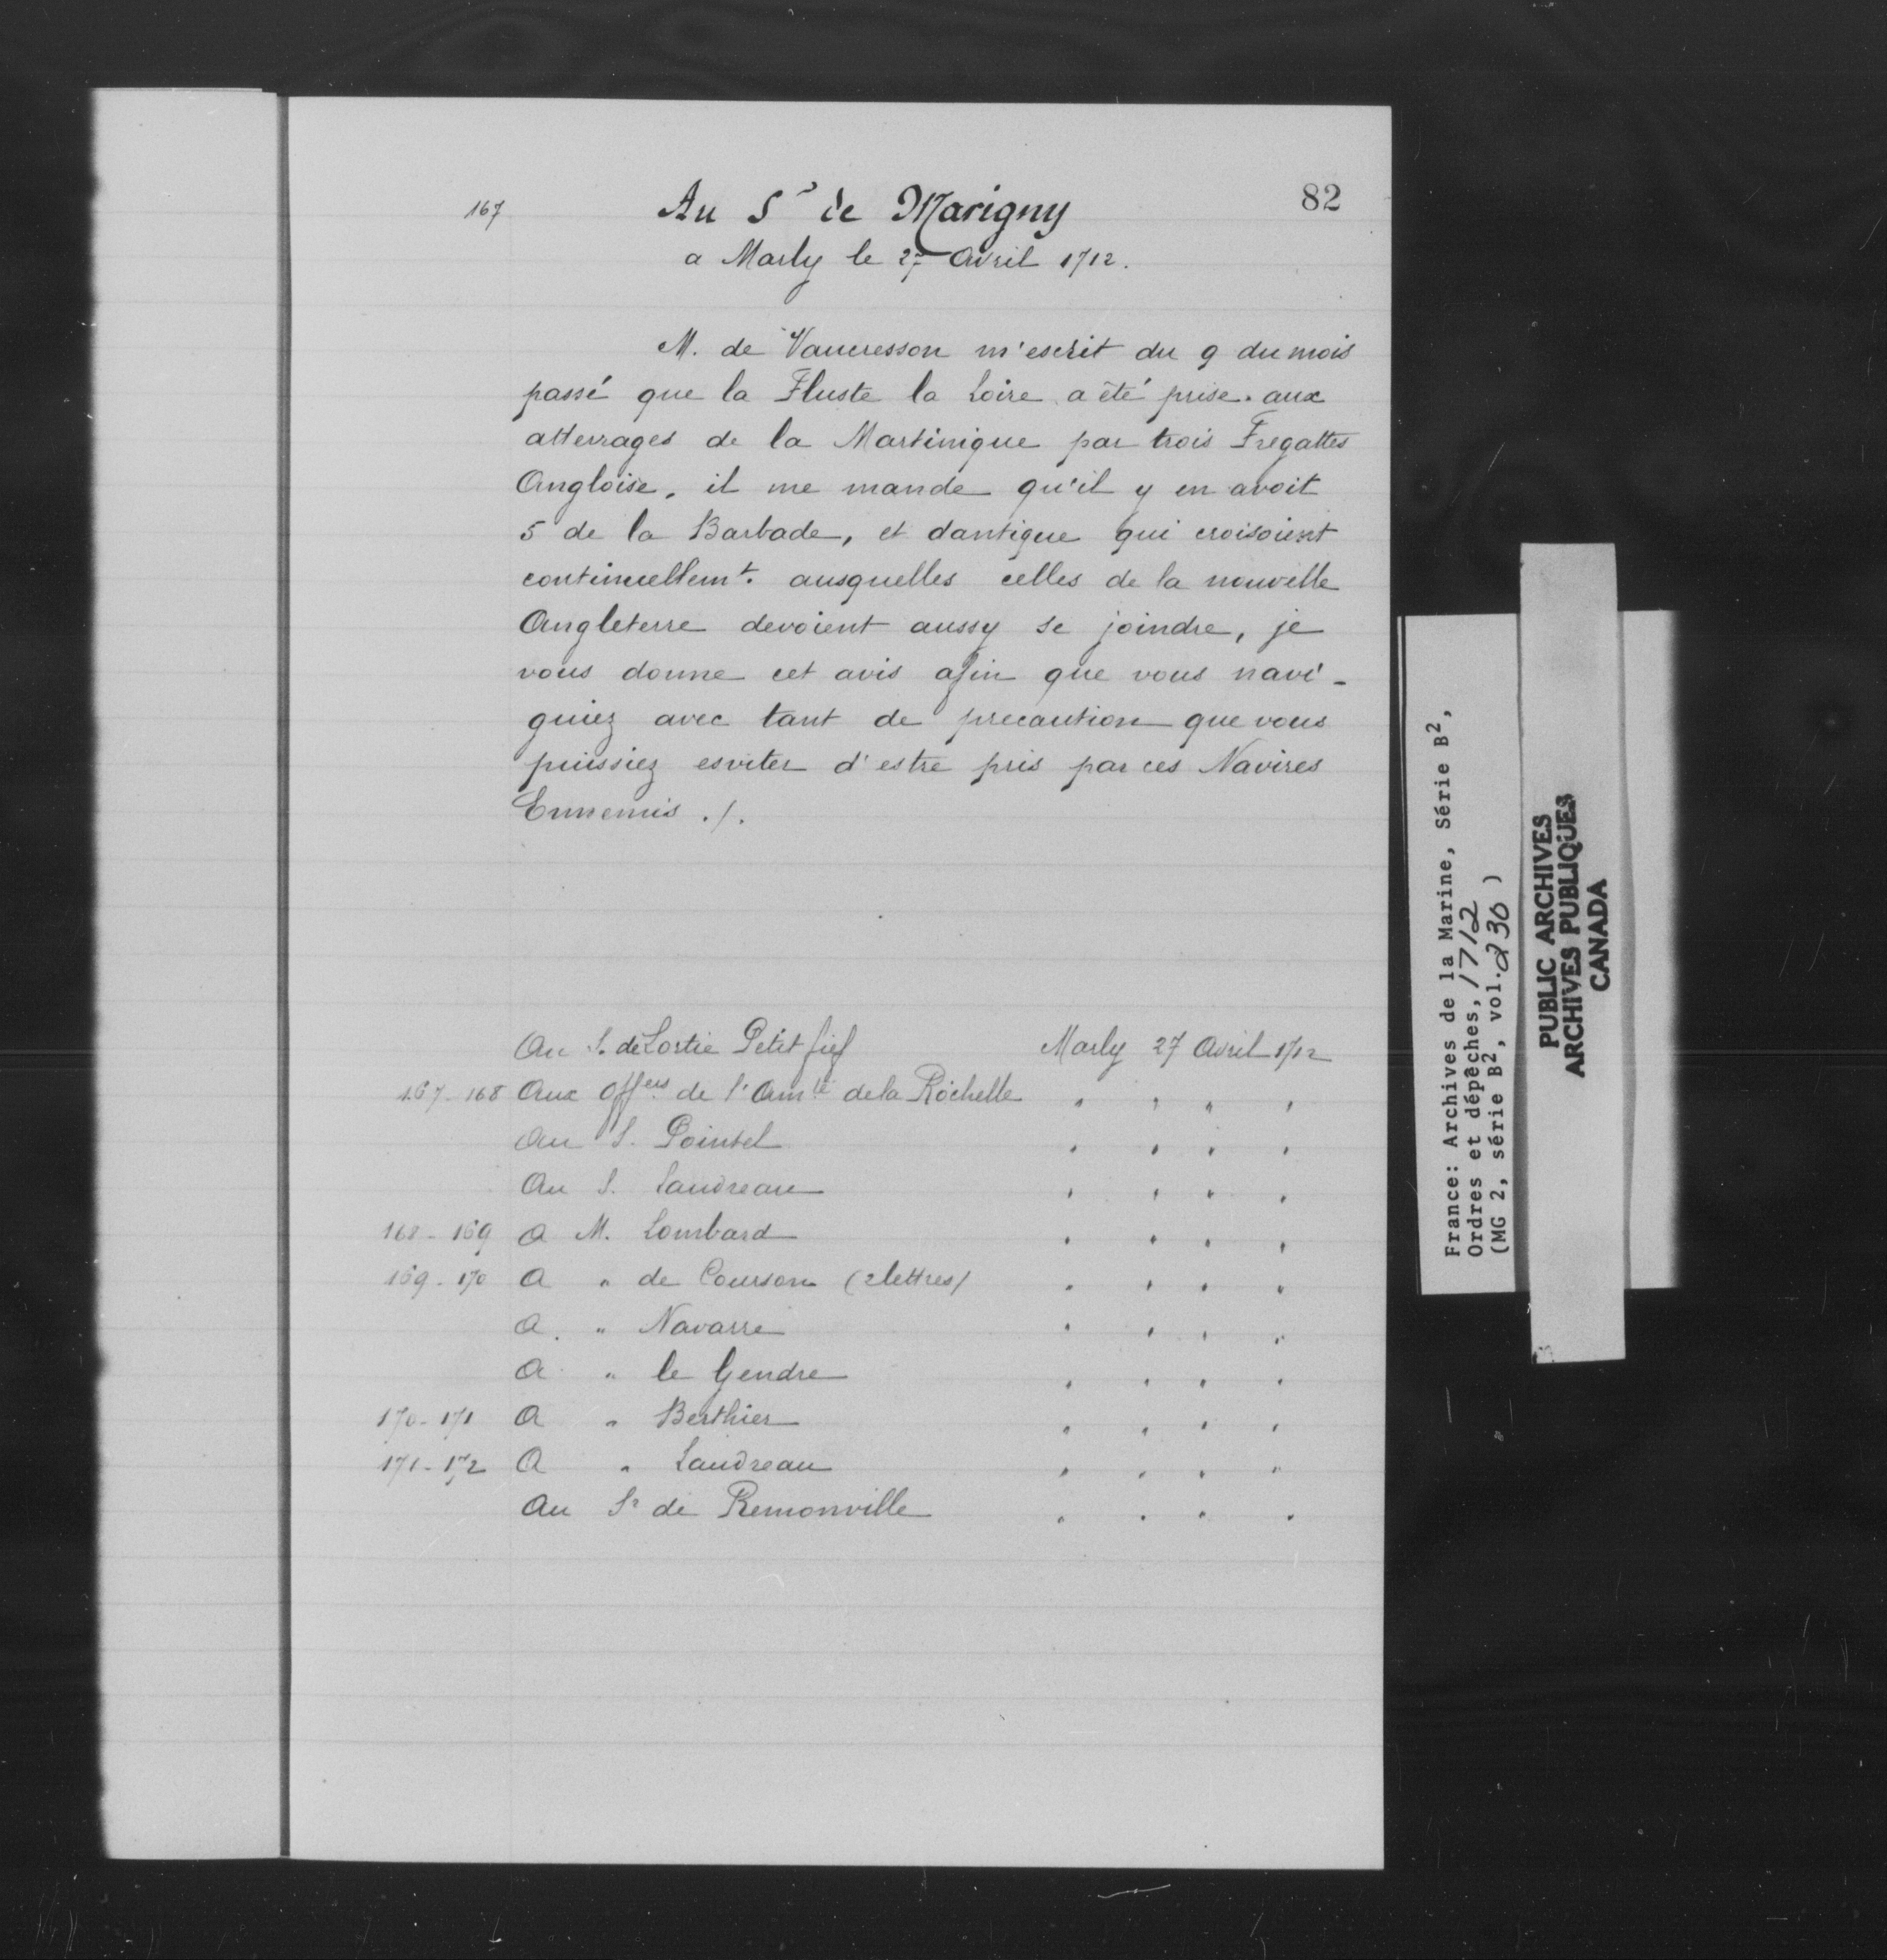 82
167 Au Sr de Marigny
a Marly le 27 Avril 1712.
M. de Vaucresson m'escrit du 9 du mois
passé que la Fluste la Loire a été prise aux
atterrages de la Martinique par trois Fregattes
Angloise, il me mande qu'il y en avoit
5 de la Barbade, et dantigue qui croisoient
continuellemt. ausquelles celles de la nouvelle
Angleterre devoient aussy se joindre, je
vous donne cet avis afin que vous navi-
guiez avec tant de precaution que vous
puissiez esviter d'estre pris par ces Navires
Ennemis ./.
Au S. de Lortie Petit fief Marly 27 Avril 1712
167-168 Aux Offers de l'Amté de la Rochelle " " " "
Au S. Pointel " " " "
Au S. Landreau " " " "
168-169 A M. Lombard " " " "
169-170 A " de Courson (2 lettres) " " " "
A. " Navarre " " " "
A " le Gendre " " " "
170-171 A " Berthier " " " "
171-172 A " Landreau " " " "
Au Sr de Remonville " " " "
France: Archives de la Marine, Série B2,
Ordres et dépêches, 1712
(MG 2, série B2, vol. 230)
PUBLIC ARCHIVES
ARCHIVES PUBLIQUES
CANADA